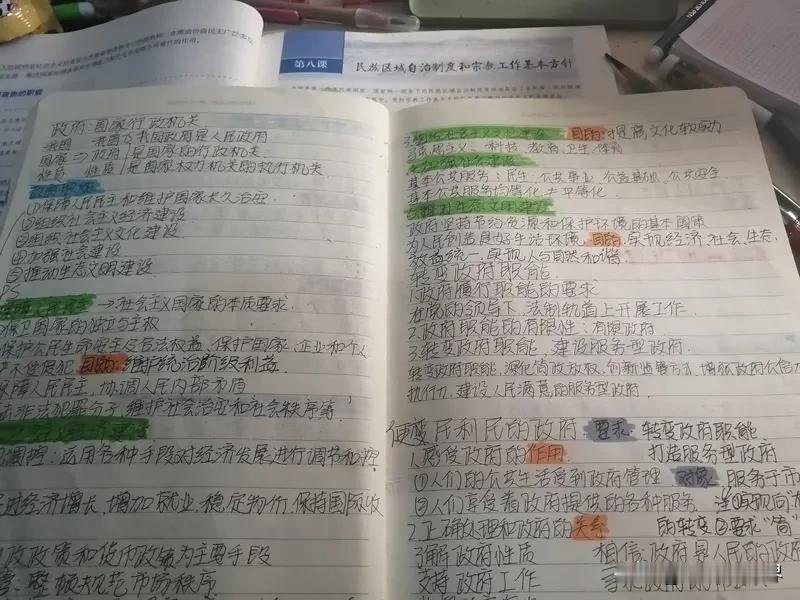 第八课
民族区域自治制度和宗教工作基本方针
政府:国家行政机关
我国 我国的我国政府是人民政府
国家⇒政府 是国家的行政机关
性质 性质 是国家权力机关的执行机关
政府职能
①保障人民民主和维护国家长久治安.
②组织社会主义经济建设
③组织社会主义文化建设
④加强社会建设
⑤推动生态文明建设.
PS
→社会主义国家的本质要求.
保卫国家的独立与主权
保护公民生命安全及合法权益,保护国家、企业和个人
不受侵犯 目的:维护统治阶级利益.
保障人民民主,协调人民内部矛盾
非法犯罪分子,维护社会治安和社会秩序等
调控:运用各种手段对经济发展进行调节和控
进经济增长,增加就业,稳定物价,保持国际收
政政策和货币政策为主要手段
整顿规范市场秩序
3.组织社会主义文化建设 目的:提高文化软实力
科技 教育 卫生 体育
社会建设
基本公共服务:民生,公共事业,公益基础,公共安全
基本公共服务均等化≠平等化.
推动生态文明建设
政府坚持节约资源和保护环境的基本国策
为人民创造良好生活环境,目的,实现经济,社会,生态,
效益统一,实现人与自然和谐.
转变政府职能.
1.政府履行职能的要求
在党的领导下,法制轨道上开展工作.
2.政府职能的有限性:有限政府
3.转变政府职能,建设服务型政府.
转变政府职能,深化简政放权,创新监管方式,增强政府公信力
执行力,建设人民满意的服务型政府.
便民利民的政府 要求 转变政府职能
1.感受政府的作用 打造服务型政府
①人们的公共生活受到政府管理 对象 服务于市
②人们享受着政府提供的各种服务
2.正确处理和政府的关系 的转变②要求"简"
了解政府性质 相信政府是人民的政府
支持政府工作